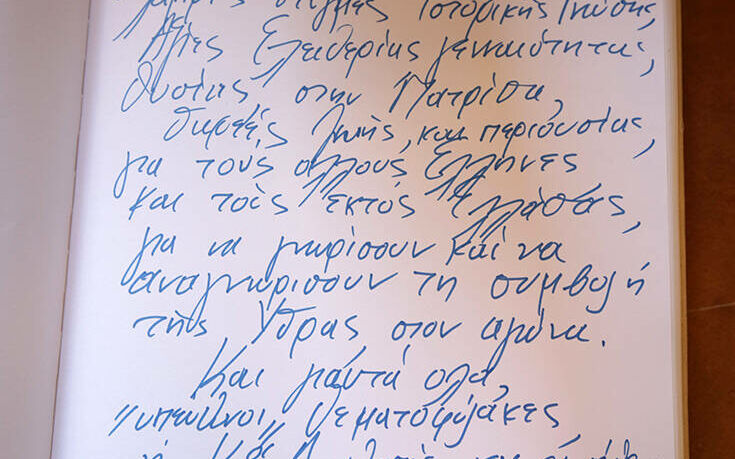 στιγμές Ιστορικής Γνώσης,
Αξίες Ελευθερίας γενναιότητας,
Θυσίας στην Πατρίδα,
ζωής, και περιουσίας,
για τους άλλους Έλληνες
και τους εκτός Ελλάδας,
για να γνωρίσουν και να
αναγνωρισουν τη συμβολή
της Ύδρας στον αγώνα.
Και γι'αυτά ολα,
"υπευθυνοι" θεματοφύλακες,